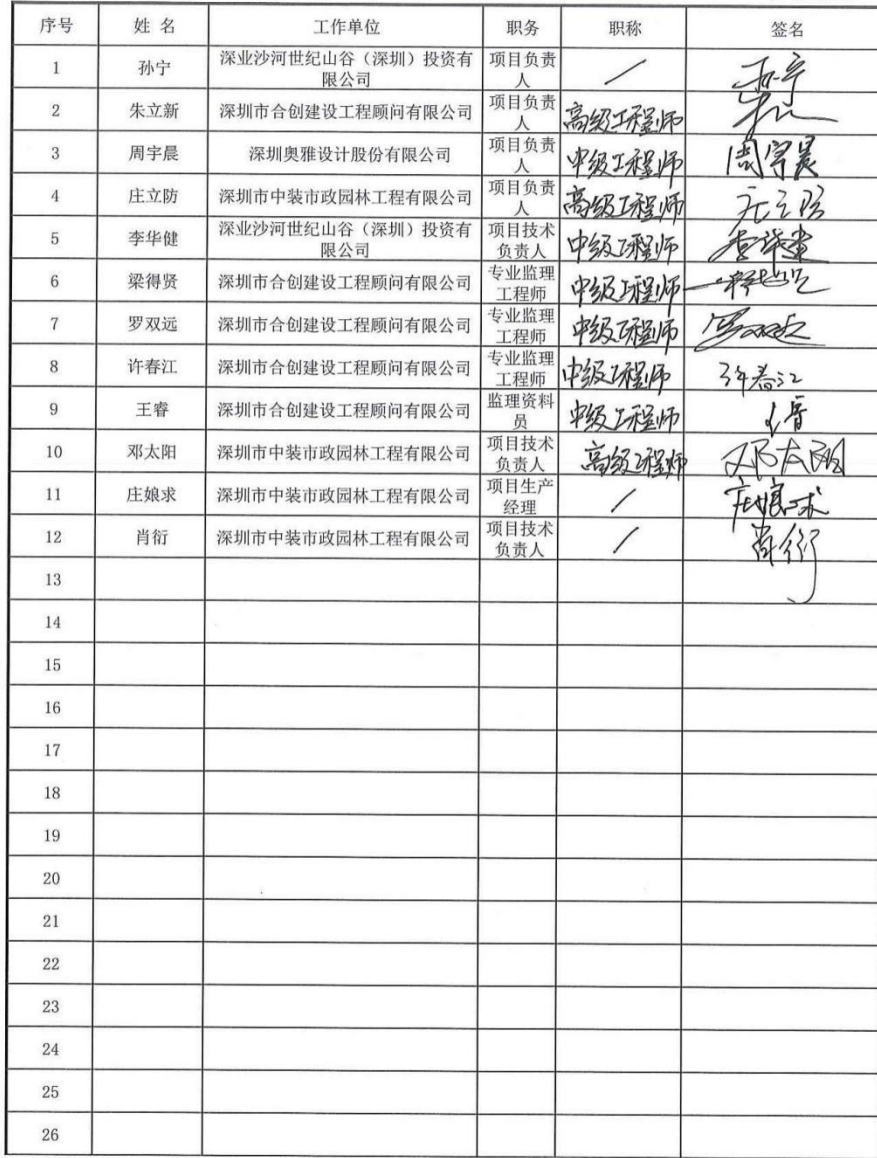 序号 姓 名 工作单位 职务 职称 签名
1 孙宁 深业沙河世纪山谷（深圳）投资有限公司 项目负责人 / 孙宁
2 朱立新 深圳市合创建设工程顾问有限公司 项目负责人 高级工程师
3 周宇晨 深圳奥雅设计股份有限公司 项目负责人 中级工程师 周宇晨
4 庄立防 深圳市中装市政园林工程有限公司 项目负责人 高级工程师 庄立防
5 李华健 深业沙河世纪山谷（深圳）投资有限公司 项目技术负责人 中级工程师 李华健
6 梁得贤 深圳市合创建设工程顾问有限公司 专业监理工程师 中级工程师
7 罗双远 深圳市合创建设工程顾问有限公司 专业监理工程师 中级工程师 罗双远
8 许春江 深圳市合创建设工程顾问有限公司 专业监理工程师 中级工程师 许春江
9 王睿 深圳市合创建设工程顾问有限公司 监理资料员 中级工程师
10 邓太阳 深圳市中装市政园林工程有限公司 项目技术负责人 高级工程师 邓太阳
11 庄娘求 深圳市中装市政园林工程有限公司 项目生产经理 / 庄娘求
12 肖衍 深圳市中装市政园林工程有限公司 项目技术负责人 / 肖衍
13
14
15
16
17
18
19
20
21
22
23
24
25
26